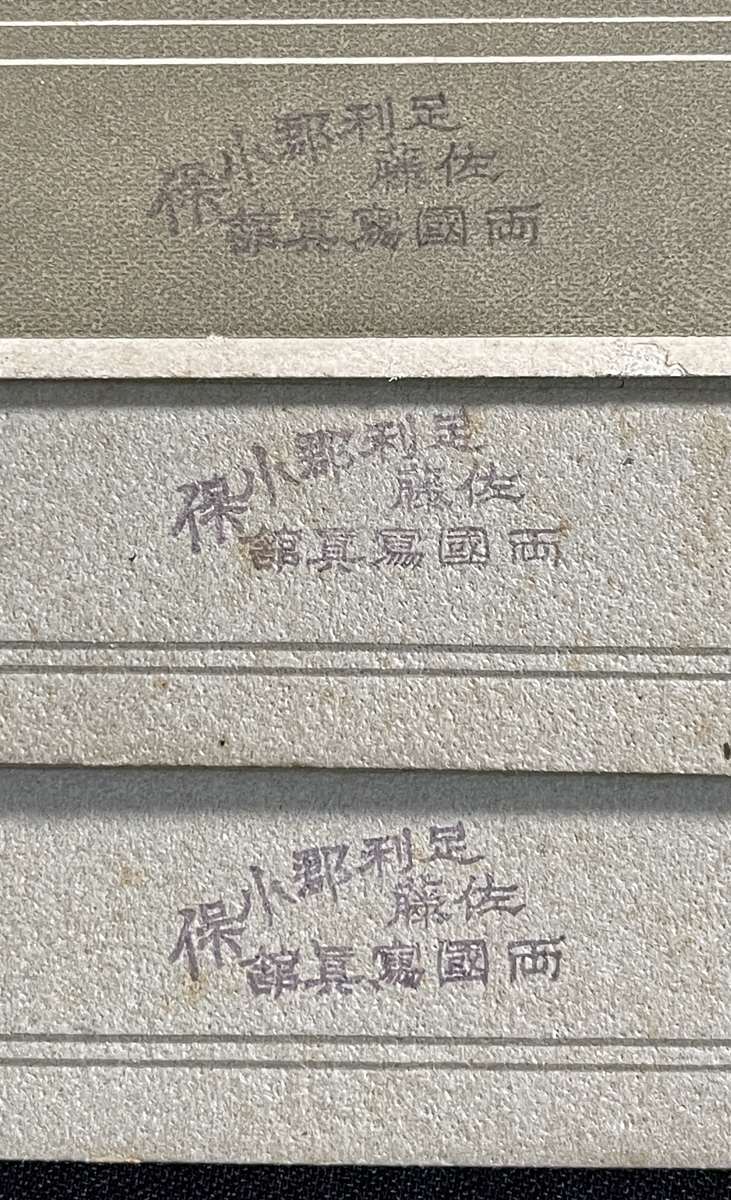 足利郡小保
佐藤
両國寫真館
足利郡小保
佐藤
両國寫真館
足利郡小保
佐藤
両國寫真館